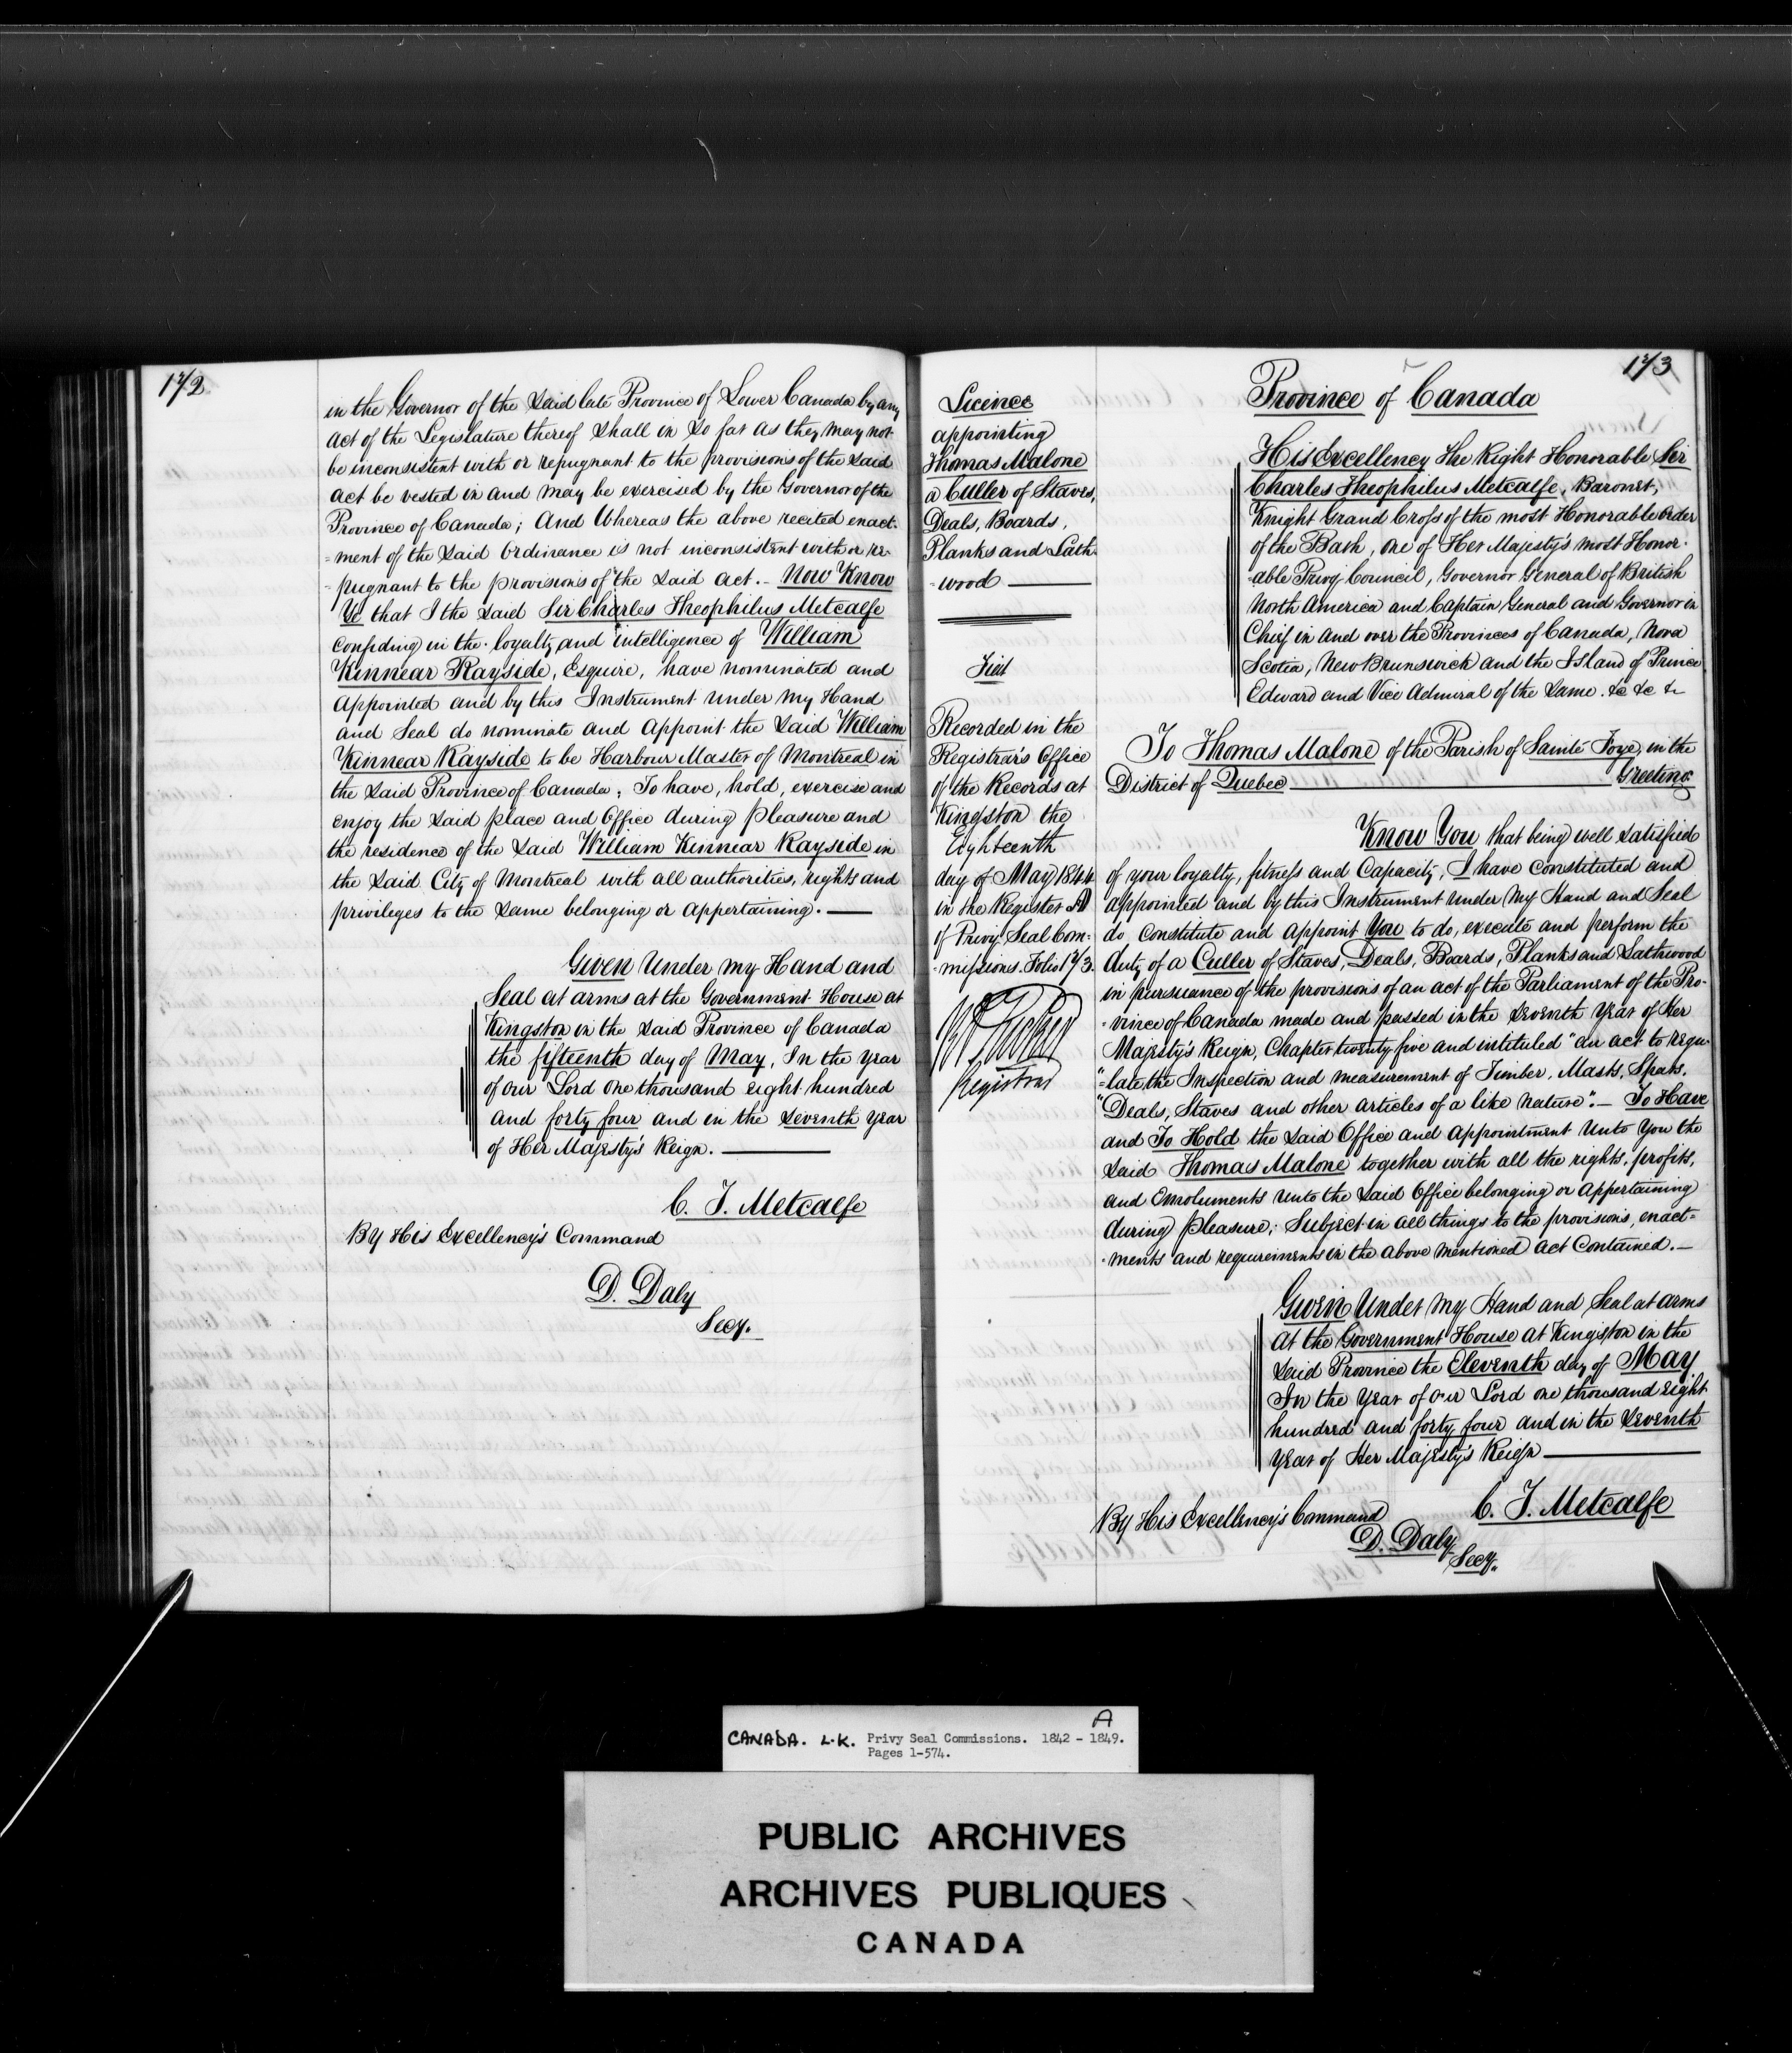 172
in the Governor of the said late Province of Lower Canada by any
act of the Legislature thereof shall in so far as they may not
be inconsistent with or repugnant to the provisions of the said
act be vested in and may be exercised by the Governor of the
Province of Canada; And Whereas the above recited enact-
=ment of the said Ordinance is not inconsistent with or re-
-pugnant to the provisions of the said act. - Now Know
Ye that I the said Sir Charles Theophilus Metcalfe
confiding in the loyalty and intelligence of William
Kinnear Rayside, Esquire, have nominated and
appointed and by this Instrument under my Hand
and Seal do nominate and appoint the said William
Kinnear Rayside to be Harbour Master of Montreal in
the said Province of Canada; To have, hold, exercise and
enjoy the said place and Office during pleasure and
the residence of the said William Kinnear Rayside in
the said City of Montreal with all authorities, rights and
privileges to the same belonging or appertaining. —
Given under my Hand and
Seal at arms at the Government House at
Kingston in the said Province of Canada
the fifteenth day of May, In the year
of our Lord one thousand eight hundred
and forty four and in the seventh year
of Her Majesty's Reign. —
C. T. Metcalfe
By His Excellency's Command
D. Daly
Secy.
173
Licence
appointing
Thomas Malone
a Culler of Staves,
Deals, Boards,
Planks and Lath-
-wood —
Fiat
Recorded in the
Registrar's Office
of the Records at
Kingston the
Eighteenth
day of May 1844
in the Register A
of Privy Seal Com=
-missions. Folio 173.
Registrar
Province of Canada
His Excellency The Right Honorable Sir
Charles Theophilus Metcalfe, Baronet,
Knight Grand Cross of the most Honorable Order
of the Bath, one of Her Majesty's most Honor-
-able Privy Council, Governor General of British
North America and Captain General and Governor in
Chief in and over the Provinces of Canada, Nova
Scotia, New Brunswick and the Island of Prince
Edward and Vice Admiral of the same. &c &c &c
To Thomas Malone of the Parish of Sainte Foye, in the
District of Quebec — Greeting
Know You that being well satisfied
of your loyalty, fitness and Capacity, I have Constituted and
appointed and by this Instrument under my Hand and Seal
do constitute and appoint You to do, execute and perform the
duty of a Culler of Staves, Deals, Boards, Planks and Lathwood
in pursuance of the provisions of an act of the Parliament of the Pro-
-vince of Canada made and passed in the seventh year of Her
Majesty's Reign, Chapter twenty five and intituled "an act to regu-
"=late the Inspection and measurement of Timber, Masts, Spars,
"Deals, Staves and other articles of a like nature". — To Have
and To Hold the said Office and appointment unto You the
said Thomas Malone together with all the rights, profits,
and Emoluments unto the said Office belonging or appertaining
during pleasure; Subject in all things to the provisions, enact=
-ments and requirements in the above mentioned act Contained. —
Given Under my Hand and Seal at arms
at the Government House at Kingston in the
said Province the Eleventh day of May
In the year of our Lord one thousand eight
hundred and forty four and in the seventh
year of Her Majesty's Reign —
C. T. Metcalfe
By His Excellency's Command
D. Daly
Secy.
A
CANADA. L.K. Privy Seal Commissions. 1842 - 1849.
Pages 1-574.
PUBLIC ARCHIVES
ARCHIVES PUBLIQUES
CANADA